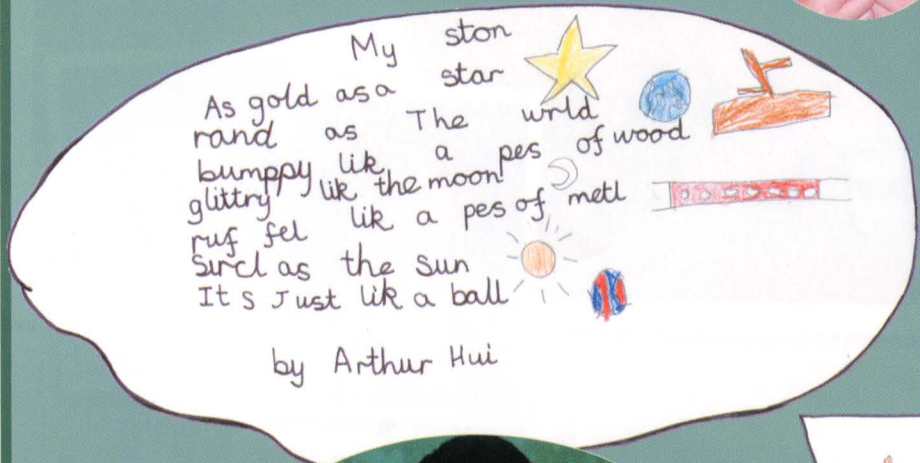 My ston
As gold as a star
rand as The wrld
bumppy lik a pes of wood
glittry lik the moon
ruf fel lik a pes of metl
sircl as the sun
It s Just lik a ball
by Arthur Hui